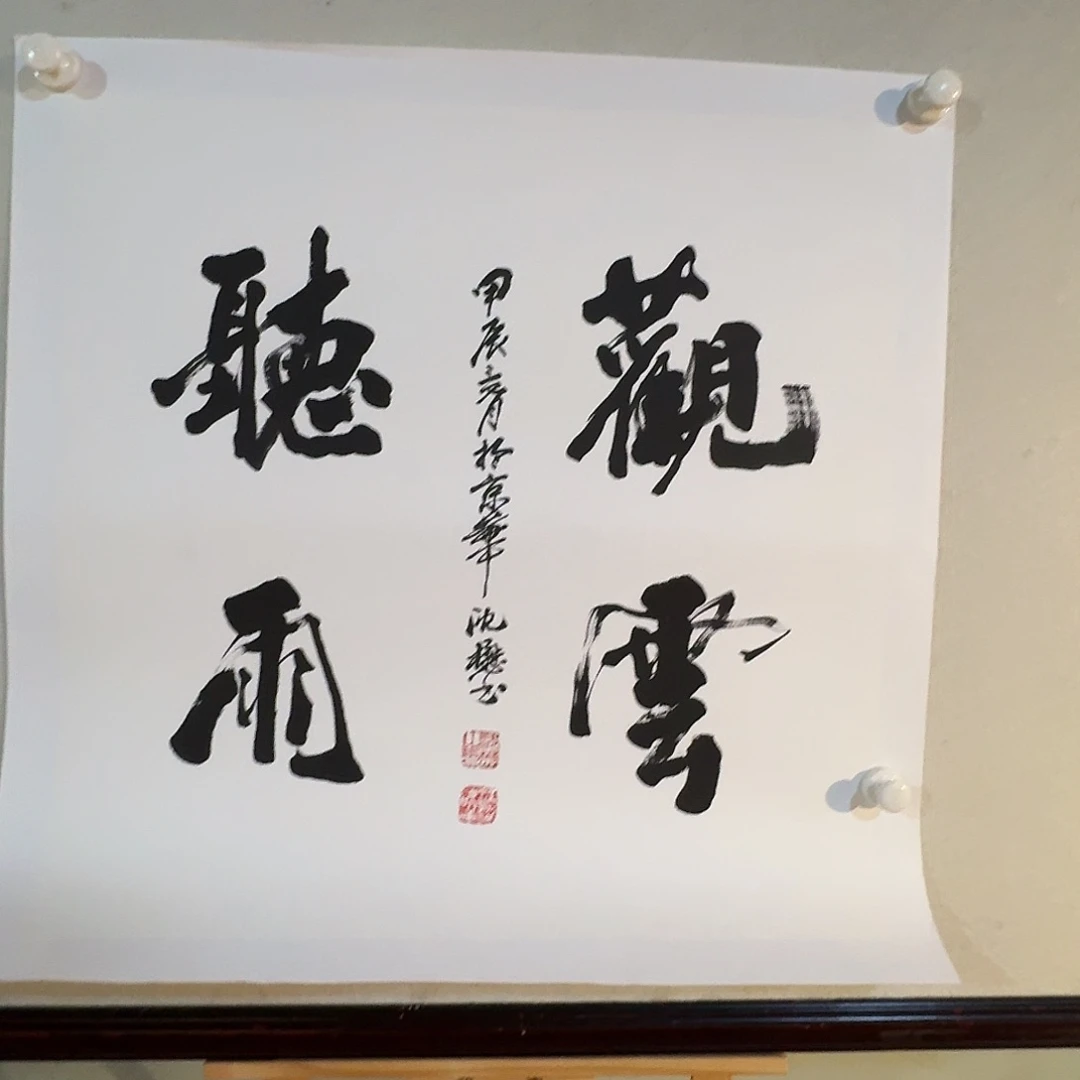 觀雲
甲辰六月於京華沈懋书
聽雨